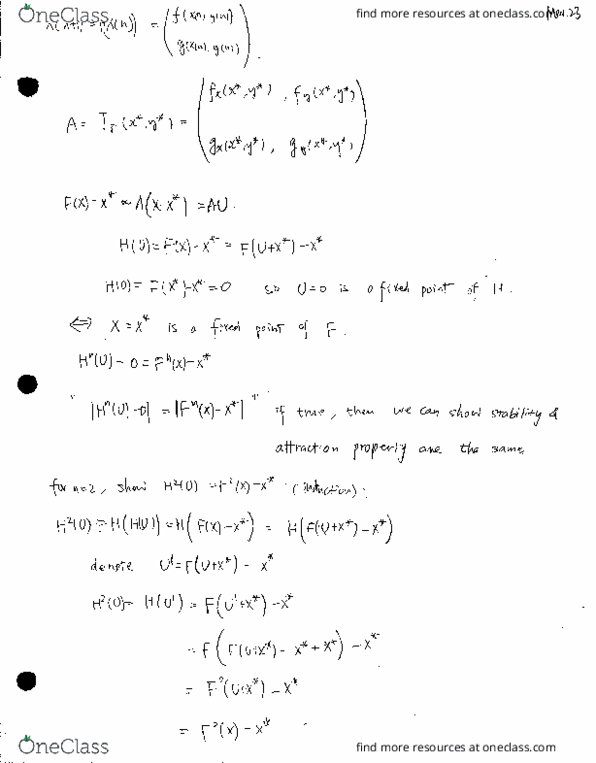 OneClass find more resources at oneclass.com Mar. 23
X(n+1) = F(X(n)) = ( f(x(n), y(n))
g(x(n), y(n)) )
A = J_F (x*, y*) = ( f_x(x*, y*) , f_y(x*, y*)
g_x(x*, y*) , g_y(x*, y*) )
F(X) - x* ≈ A(X - X*) = AU.
H(U) = F(X) - x* = F(U+x*) - x*
H(0) = F(X*) - x* = 0 so U=0 is a fixed point of H.
⇔ X = x* is a fixed point of F.
H^n(U) - 0 = F^n(x) - x*
" |H^n(U) - 0| = |F^n(x) - x*| " if true, then we can show stability &
attraction property are the same
for n=2, show H²(U) = F²(x) - x* (induction).
H²(U) = H(H(U)) = H( F(x) - x* ) = H( F(U+x*) - x* )
denote U' = F(U+x*) - x*
H²(U) = H(U') = F(U'+x*) - x*
= F( F(U+x*) - x* + x* ) - x*
= F²(U+x*) - x*
= F²(x) - x*
OneClass find more resources at oneclass.com